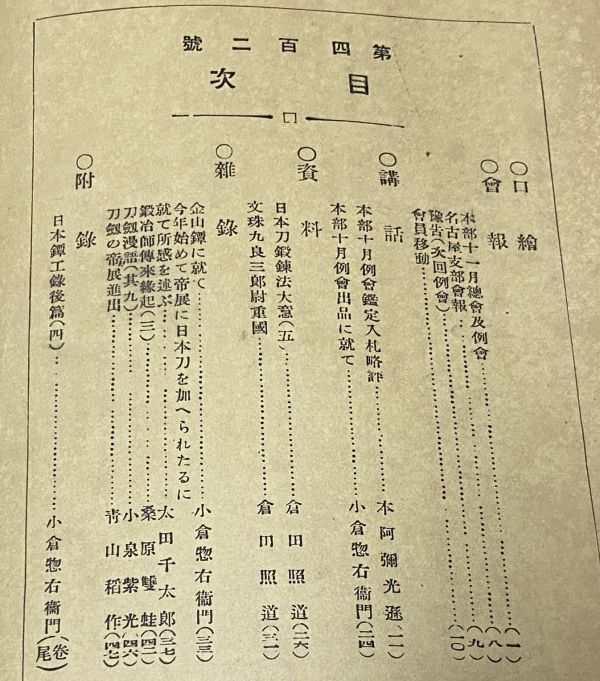 第四百二號
目次
○口繪
○會報
本部十一月總會及例會……(一)
名古屋支部會報……(八)
豫告(次回例會)……(九)
會員移動……(一〇)
○講話
本部十月例會鑑定入札略評……本阿彌光遜(一一)
本部十月例會出品に就て……小倉惣右衞門(二四)
○資料
日本刀鍛錬法大意(五)……倉田照道(二六)
文珠九良三郎尉重國……倉田照道(三一)
○雜錄
金山鐔に就て……小倉惣右衞門(三三)
今年始めて帝展に日本刀を加へられたるに
就て所感を述ぶ……太田千太郎(三七)
鍛冶師傳來緣起(三)……桑原雙蛙(四二)
刀劔漫語(其九)……小泉紫光(四六)
刀劔の帝展進出……靑山稻作(四七)
○附錄
日本鐔工錄後篇(四)……小倉惣右衞門(卷尾)